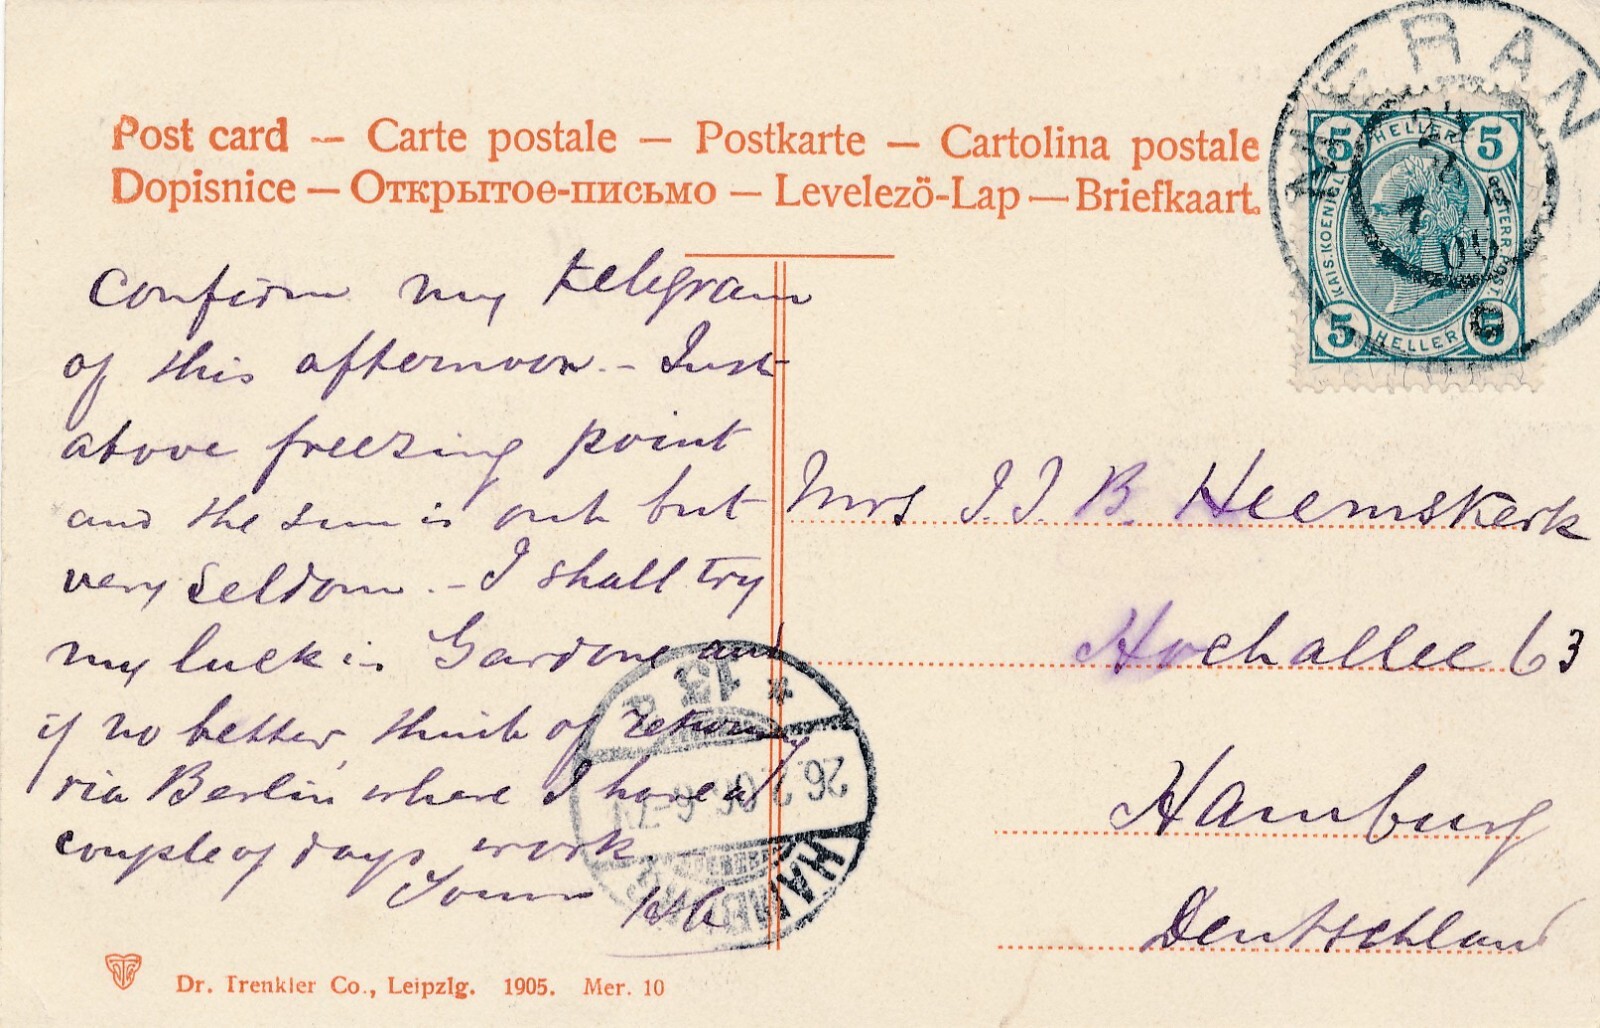 Post card — Carte postale — Postkarte — Cartolina postale
Dopisnice — Открытое-письмо — Levelezö-Lap — Briefkaart.
MERAN
5 HELLER 5
KAIS. KOENIGL. OESTERR. POST.
5 HELLER 5
Confirm my telegram
of this afternoon. - Just
above freezing point
and the sun is out but
very seldom. - I shall try
my luck in Gardone and
if no better, think of returning
via Berlin, where I have a
couple of days work.
Yours
Mrs J.J. B. Heemskerk
Hochallee 63
Hamburg
Deutschland
* 13
26.2.06. 6-7
HAMBURG
Dr. Trenkler Co., Leipzig. 1905. Mer. 10